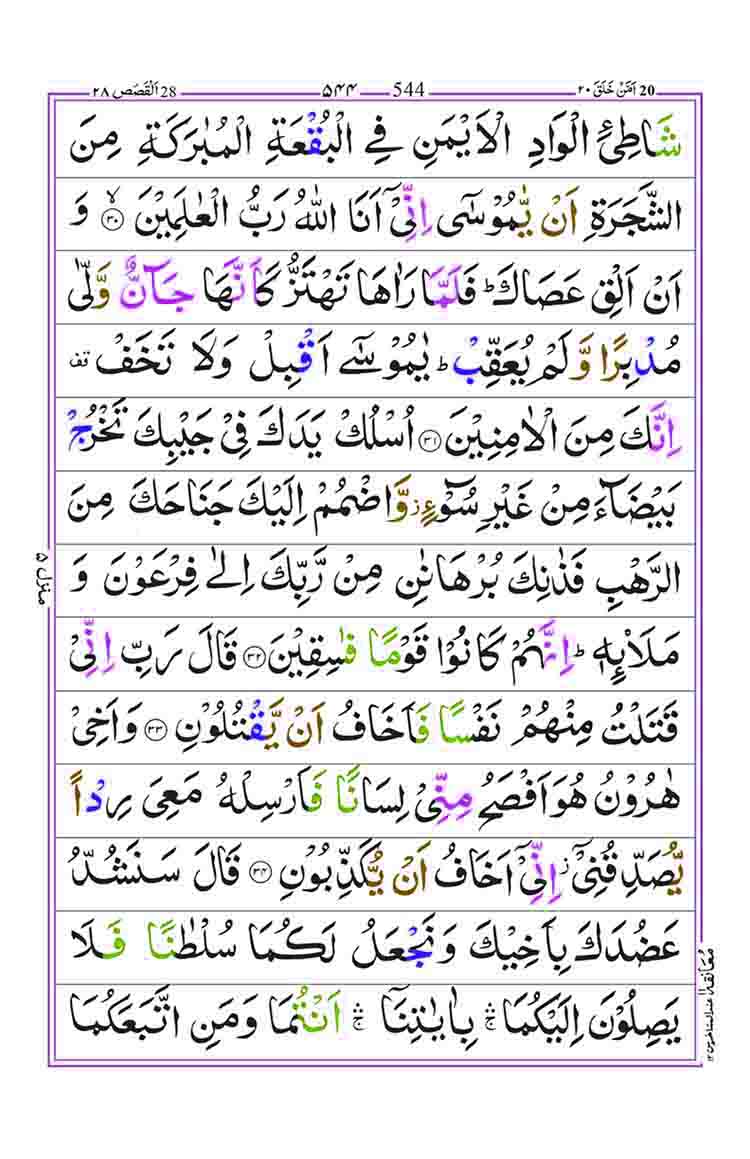 20 اَمَّنْ خَلَقَ ٢٠ 544 ۵۴۴ 28 اَلْقَصَص ٢٨
شَاطِیِٔ الْوَادِ الْاَیْمَنِ فِی الْبُقْعَةِ الْمُبٰرَكَةِ مِنَ
الشَّجَرَةِ اَنْ یّٰمُوْسٰۤی اِنِّیْۤ اَنَا اللّٰهُ رَبُّ الْعٰلَمِیْنَ ۙ﴿۳۰﴾ وَ
اَنْ اَلْقِ عَصَاكَ ؕ فَلَمَّا رَاٰهَا تَهْتَزُّ كَاَنَّهَا جَآنٌّ وَّلّٰی
مُدْبِرًا وَّلَمْ یُعَقِّبْ ؕ یٰمُوْسٰۤی اَقْبِلْ وَلَا تَخَفْ قف
اِنَّكَ مِنَ الْاٰمِنِیْنَ ﴿۳۱﴾ اُسْلُكْ یَدَكَ فِیْ جَیْبِكَ تَخْرُجْ
بَیْضَآءَ مِنْ غَیْرِ سُوْٓءٍ ز وَّاضْمُمْ اِلَیْكَ جَنَاحَكَ مِنَ
الرَّهْبِ فَذٰنِكَ بُرْهَانٰنِ مِنْ رَّبِّكَ اِلٰی فِرْعَوْنَ وَ
مَلَا۠ئِهٖ ؕ اِنَّهُمْ كَانُوْا قَوْمًا فٰسِقِیْنَ ﴿۳۲﴾ قَالَ رَبِّ اِنِّیْ
قَتَلْتُ مِنْهُمْ نَفْسًا فَاَخَافُ اَنْ یَّقْتُلُوْنِ ﴿۳۳﴾ وَاَخِیْ
هٰرُوْنُ هُوَ اَفْصَحُ مِنِّیْ لِسَانًا فَاَرْسِلْهُ مَعِیَ رِدْاً
یُّصَدِّقُنِیْۤ ز اِنِّیْۤ اَخَافُ اَنْ یُّكَذِّبُوْنِ ﴿۳۴﴾ قَالَ سَنَشُدُّ
عَضُدَكَ بِاَخِیْكَ وَنَجْعَلُ لَكُمَا سُلْطٰنًا فَلَا
یَصِلُوْنَ اِلَیْكُمَا ۛۚ بِاٰیٰتِنَاۤ ۛۚ اَنْتُمَا وَمَنِ اتَّبَعَكُمَا
منزل ۵
معانقة